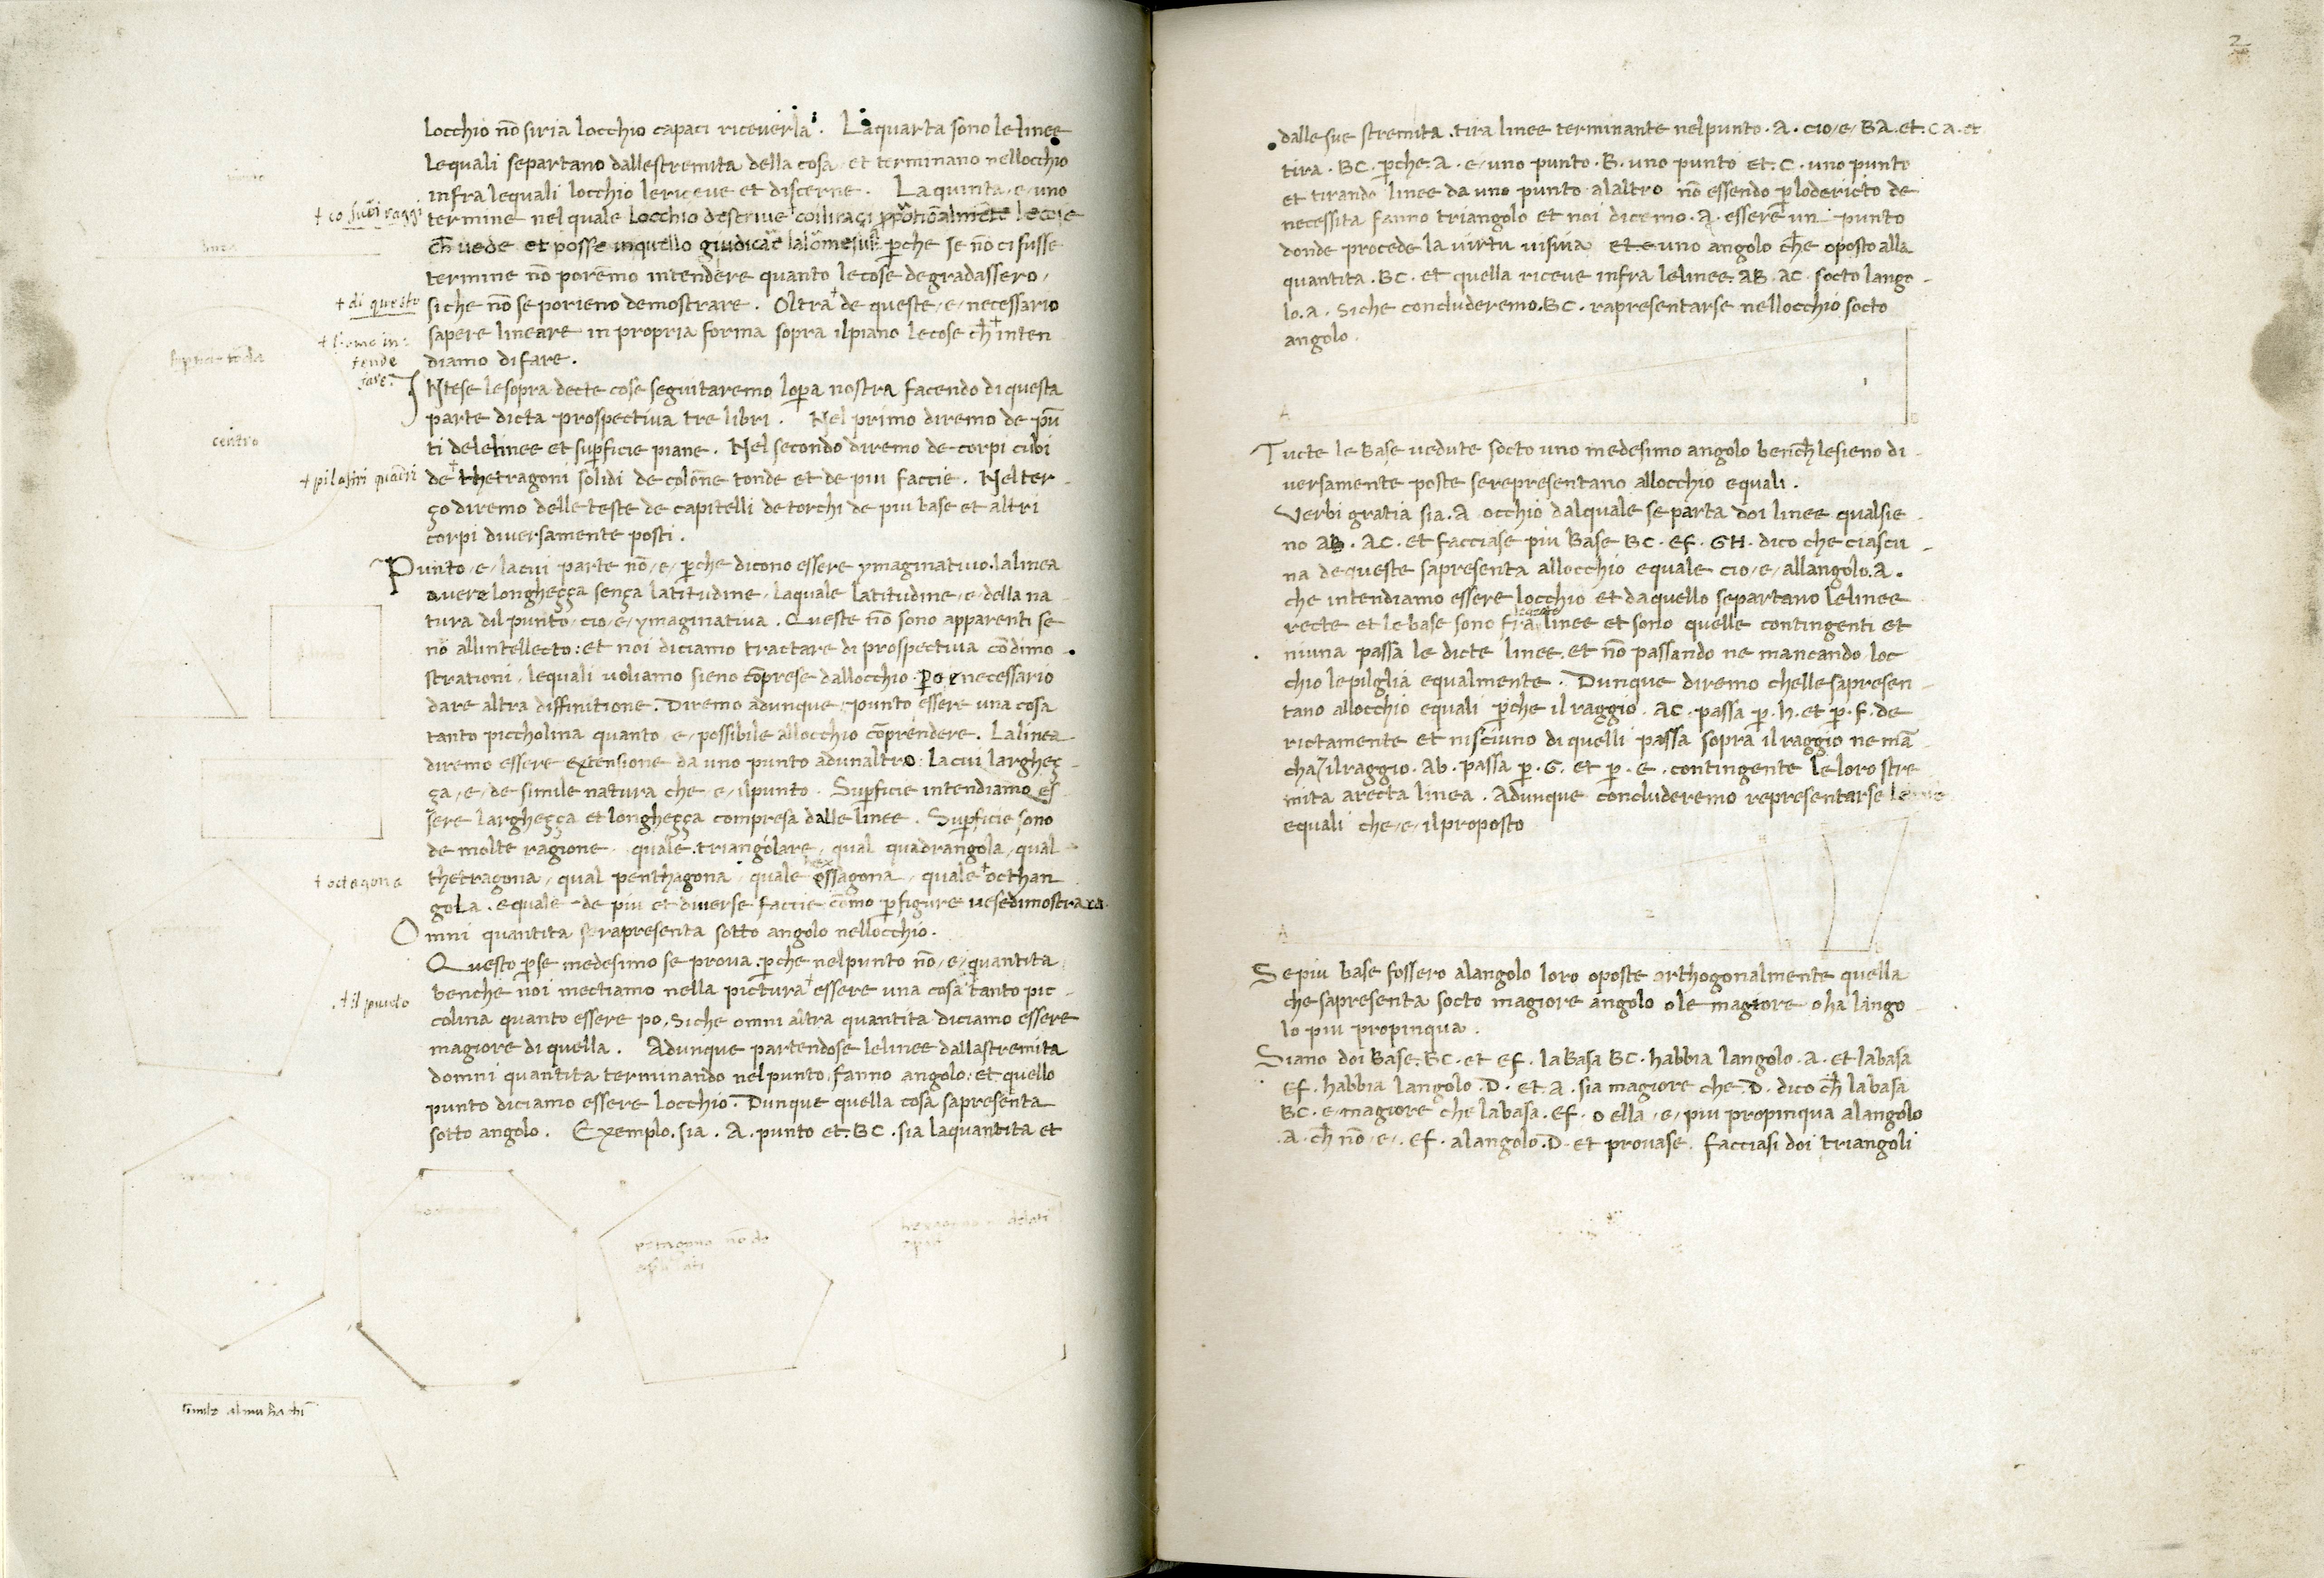 locchio nō siria locchio capaci riceverla. Laquarta sono lelinee
lequali separtano dallestremita della cosa et terminano nellocchio
infra lequali locchio lericeve et discerne. La quinta e uno
termine nel quale locchio descrive coi suoi raggi
ch̄ uede et posse inquello giudicare p̱che se nō ci fusse
termine nō porēmo intendere quanto lecose degradassero
siche nō se porieno demostrare. Oltra + de queste e necessario
sapere lineare in propria forma sopra ilpiano lecose ch̄ + inten
diamo di fare.
+ di questo
+ come in
tende
fare.
INtese lesopra decte cose seguitaremo lop̱a nostra facendo di questa
parte dicta prospectiva tre libri. Nel primo diremo de pū
ti delelinee et sup̱ficie piane. Nel secondo diremo de corpi cubi
+ pilastri quadri
de + thetragoni solidi de colōne tonde et de piu faccie. Nelter
ço diremo delle teste de capitelli de torchi de piu base et altri
corpi diversamente posti.
Punto e lacui parte nō e p̱che dicono essere ymaginativo. lalinea
avere longheçça sença latitudine laquale latitudine e della na
tura dil punto cio e ymaginativa. Queste nō sono apparenti se
nō allintellecto: et noi diciamo tractare di prospectiva cōdimo
strationi lequali voliamo sieno cōprese dallocchio p̱o e necessario
dare altra diffinitione. Diremo adunque punto essere una cosa
tanto piccholina quanto e possibile allocchio cōprendere. Lalinea
diremo essere extensione da uno punto adunaltro: lacui largheç
ça e de simile natura che e ilpunto. Sup̱ficie intendiamo es
sere largheçça et longheçça compresa dalle linee. Sup̱ficie sono
de molte ragione quale triangolare, qual quadrangola, qual
thetragona, qual penthagona, quale essagona, quale + octhan
+ octagona
gola. equale de piu et diverse faccie cōmo p̱ figure vesedimostrara.
Omni quantita se rapresenta sotto angolo nellocchio.
Questo p̱se medesimo se prova: p̱che nelpunto nō e quantita
benche noi mectiamo nella pictura + essere una cosa tanto pic
+ il punto
colina quanto essere po. Siche omni altra quantita diciamo essere
magiore di quella. Adunque partendose lelinee dallastremita
domni quantita terminando nelpunto fanno angolo: et quello
punto diciamo essere locchio. Dunque quella cosa sapresenta
sotto angolo. Exemplo. sia. A. punto et. BC. sia laquantita et
linea
centro
2
dallesue stremita. tira linee terminante nelpunto. A. cio e BA. et. CA. et
tira. BC. p̱che. A. e uno punto. B. uno punto et. C. uno punto
et tirando linee da uno punto alaltro nō essendo p̱lodericto de
necessita fanno triangolo et noi dicemo. A. essere un punto
donde procede la virtu visiva et e uno angolo ch̄e oposto alla
quantita. BC. et quella riceve infra lelinee. AB. AC. socto lango
lo. a. Siche concluderemo. BC. rapresentarse nellocchio socto
angolo.
A
Tucte le Base vedute socto uno medesimo angolo bench̄ lesieno di
versamente poste serepresentano allocchio equali.
Verbi gratia sia. A occhio dalquale se parta doi linee qualsie
no AB. AC. et facciase piu Base BC. EF. GH. dico che ciascu
na dequeste sapresenta allocchio equale cio e allangolo. A.
che intendiamo essere locchio et daquello separtano lelinee
recte et le base sono fra linee et sono quelle contingenti et
niuna passa le dicte linee. et nō passando ne mancando loc
chio lepilglia equalmente. Dunque diremo chelle sapresen
tano allocchio equali p̱che il raggio. AC. passa p̱. h. et p̱. f. de
rictamente et nisciuno di quelli passa sopra il raggio ne mā
cha il raggio. Ab. passa p̱. G. et p̱. E. contingente leloro stre
mita arecta linea. Adunque concluderemo representarse
equali che e il proposto
A
Sepiu base fossero alangolo loro oposte orthogonalmente quella
che sapresenta socto magiore angolo o le magiore o ha lango
lo piu propinqua.
Siano doi Base. BC. et EF. la Basa BC. habbia langolo. A. et labasa
EF. habbia langolo. D. et. A. sia magiore che. D. dico ch̄ labasa
BC. e magiore che labasa. EF. o ella e piu propinqua alangolo
A. ch̄ nō e. EF. alangolo. D. et provase. facciasi doi triangoli